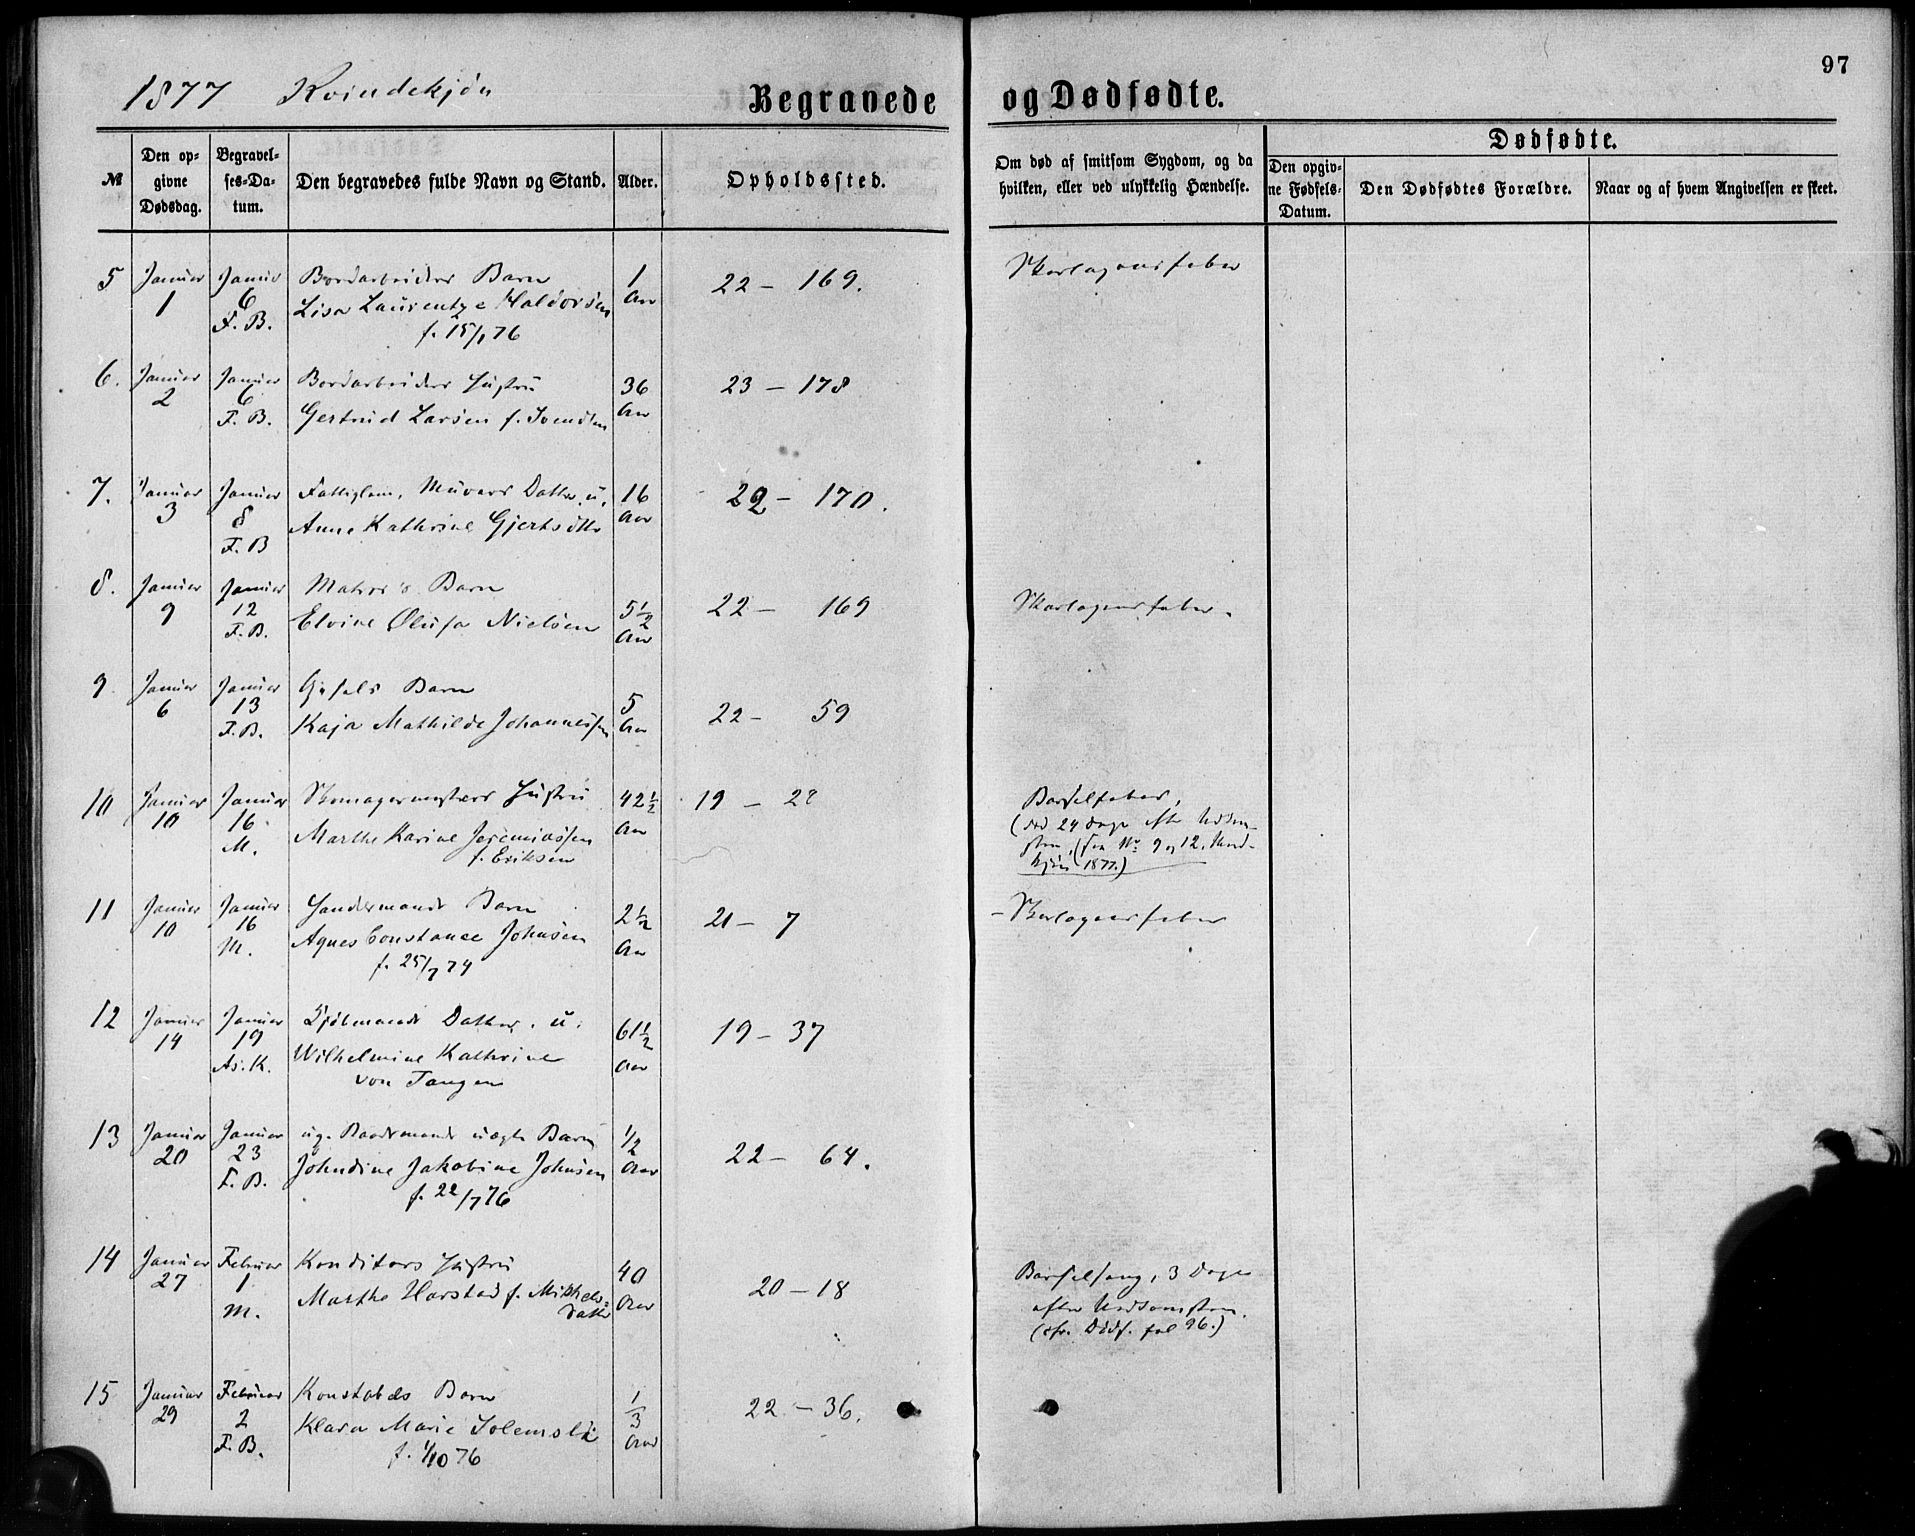 1877 Kvindekjøn
Begravede og Dødfødte.
97
№
Den opgivne Dødsdag.
Begravelses-Datum.
Den begravedes fulde Navn og Stand.
Alder.
Opholdssted.
Om død af smitsom Sygdom, og da hvilken, eller ved ulykkelig Hændelse.
Dødfødte.
Den opgivne Fødsels-Datum.
Den Dødfødtes Forældre.
Naar og af hvem Angivelsen er skeet.
5 Januar 1 Januar 6 F. B.
Bordarbeiders Barn
Lisa Laurentze Haldorsen
f. 15/1 76
1 Aar
22 – 169.
Skarlagensfeber
6. Januar 2 Januar 6 F. B.
Bordarbeiders Hustru
Gertrud Larsen f.
36 Aar
23 – 178
7. Januar 3 Januar 8 F. B
Fattiglem, Murers Datter u.
Anne Kathrine Gjertsdtr
16 Aar
22 – 170.
8. Januar 9 Januar 12 F. B.
Matros's Barn
Elvine Olufa Nielsen
5 1/2 Aar
22 – 169
Skarlagensfeber.
9. Januar 6 Januar 13 F. B.
Barn
Kaja Mathilde Johannessen
5 Aar
22 – 59
10 Januar 10 Januar 16 M.
Skomagermesters Hustru
Marthe Karine Jeremiassen
f. Eriksen
42 1/2 Aar
19 – 28
Barselfeber,
(død 24 Dage efter Nedkom-
sten, (fra No 9 og 12.
kjøn 1877.)
11 Januar 10 Januar 16 M.
Barn
Agnes Constance Johnsen
f. 25/7 74
2 1/2 Aar
21 – 7
– Skarlagensfeber
12 Januar 14 Januar 19 As. K.
Kjøbmands Datter. u.
Wilhelmine Kathrine
von Tangen
61 1/2 Aar
19 – 37
13 Januar 20 Januar 23 F. B.
ug. Baadsmands uægte Barn
Johndine Jakobine Johnsen
f. 22/7 76
1/2 Aar
22 – 64.
14 Januar 27 Februar 1 M.
Konditors Hustru
Marthe Harstad f. Mikkels-
datter
40 Aar
20 – 18
Barselseng, 3 Dage
efter Nedkomsten.
(cfr. Dødf. fol 96.)
15 Januar 29 Februar 2 F. B.
Konstabels Barn
Klara Marie Solemsli
f. 1/10 76
1/3 Aar
22 – 36.